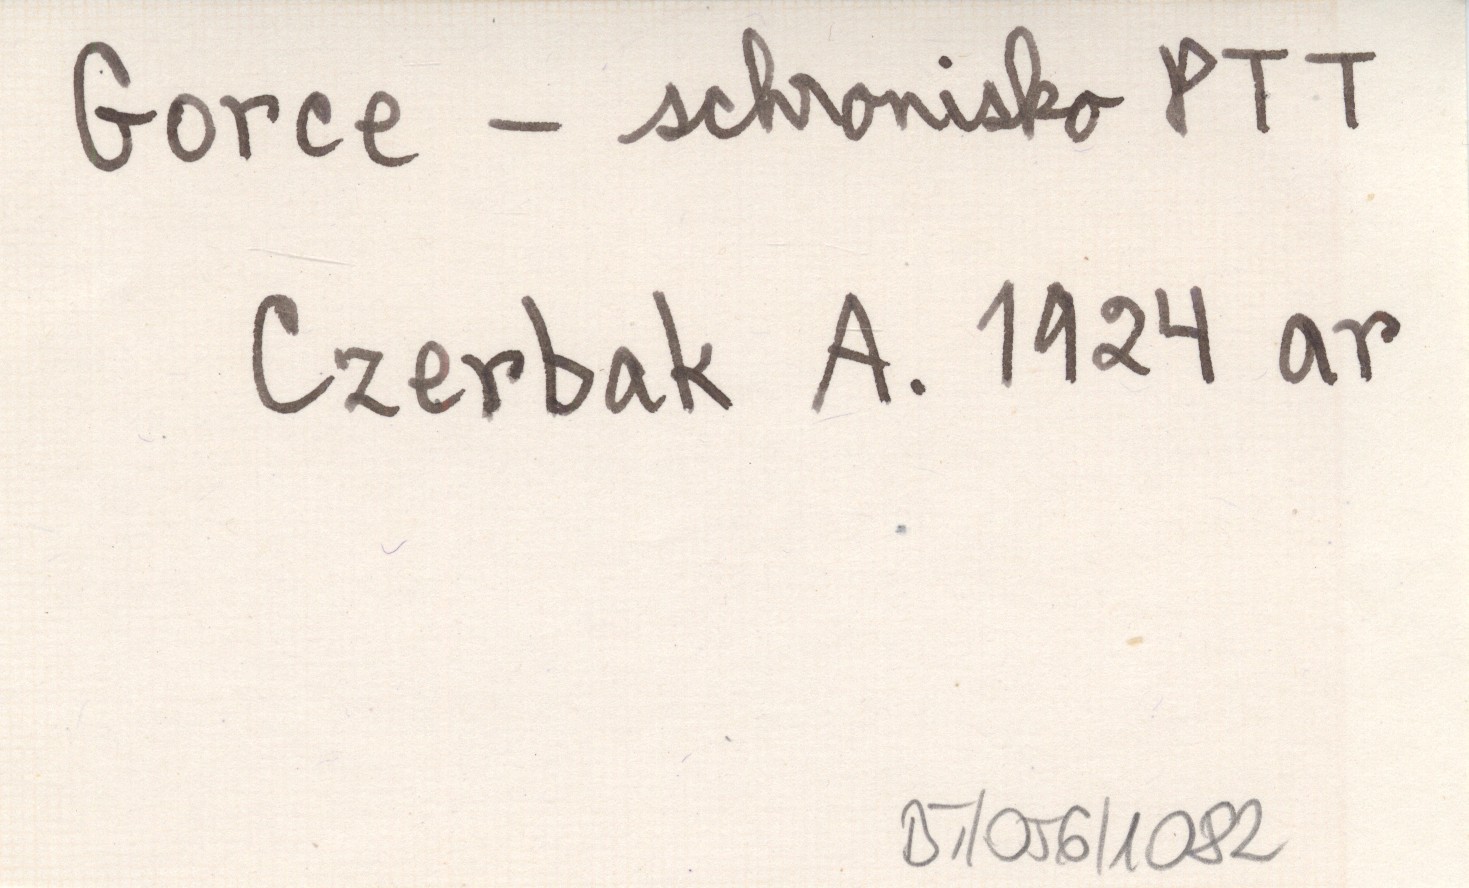 Gorce – schronisko PTT
Czerbak A. 1924 ar
DI/056/1082